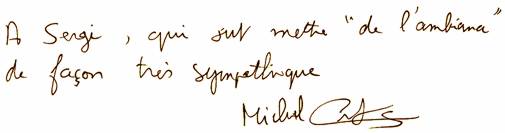 A Sergi, qui sut mettre "de l'ambiana"
de façon très sympathique
Michel